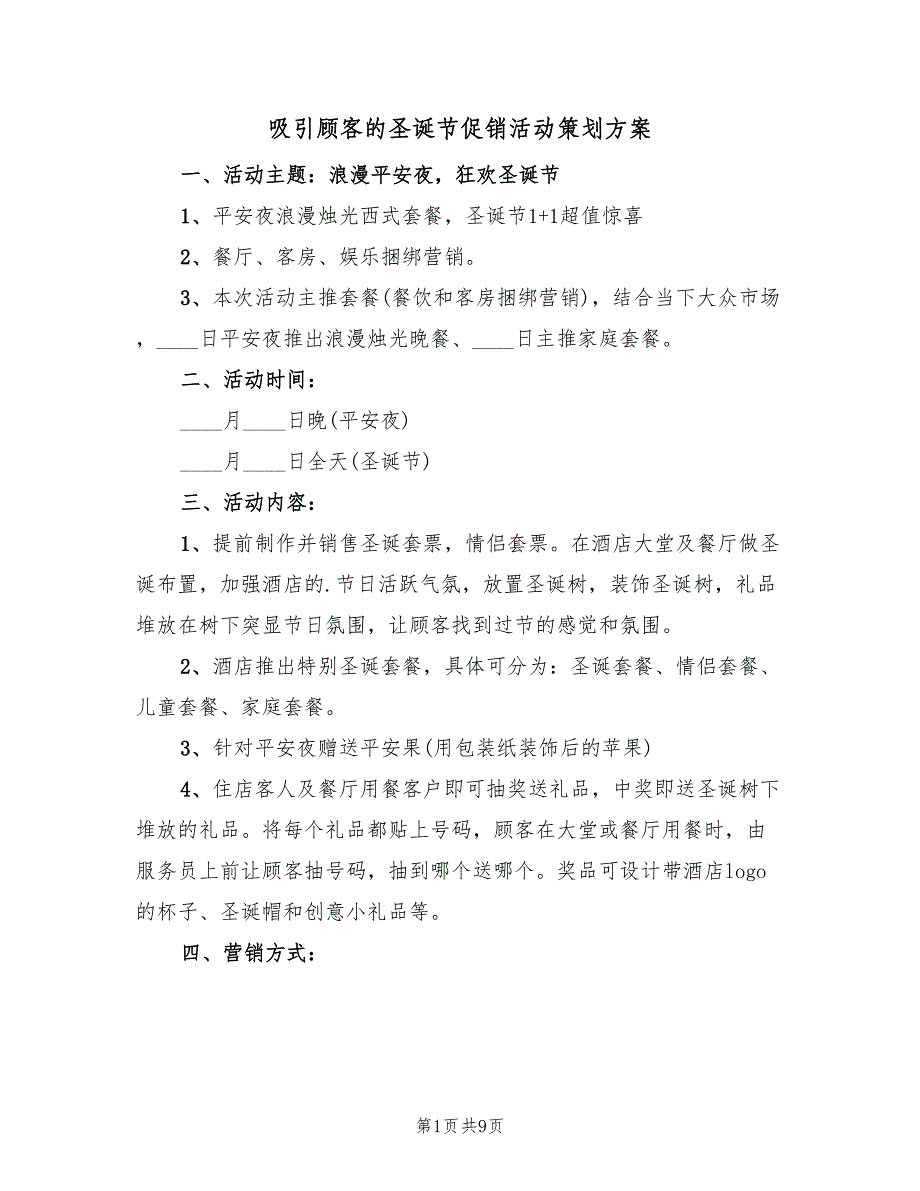 吸引顾客的圣诞节促销活动策划方案
一、活动主题：浪漫平安夜，狂欢圣诞节
1、平安夜浪漫烛光西式套餐，圣诞节1+1超值惊喜
2、餐厅、客房、娱乐捆绑营销。
3、本次活动主推套餐(餐饮和客房捆绑营销)，结合当下大众市场
，____日平安夜推出浪漫烛光晚餐、____日主推家庭套餐。
二、活动时间：
____月____日晚(平安夜)
____月____日全天(圣诞节)
三、活动内容：
1、提前制作并销售圣诞套票，情侣套票。在酒店大堂及餐厅做圣
诞布置，加强酒店的.节日活跃气氛，放置圣诞树，装饰圣诞树，礼品
堆放在树下突显节日氛围，让顾客找到过节的感觉和氛围。
2、酒店推出特别圣诞套餐，具体可分为：圣诞套餐、情侣套餐、
儿童套餐、家庭套餐。
3、针对平安夜赠送平安果(用包装纸装饰后的苹果)
4、住店客人及餐厅用餐客户即可抽奖送礼品，中奖即送圣诞树下
堆放的礼品。将每个礼品都贴上号码，顾客在大堂或餐厅用餐时，由
服务员上前让顾客抽号码，抽到哪个送哪个。奖品可设计带酒店logo
的杯子、圣诞帽和创意小礼品等。
四、营销方式：
第1页 共9页